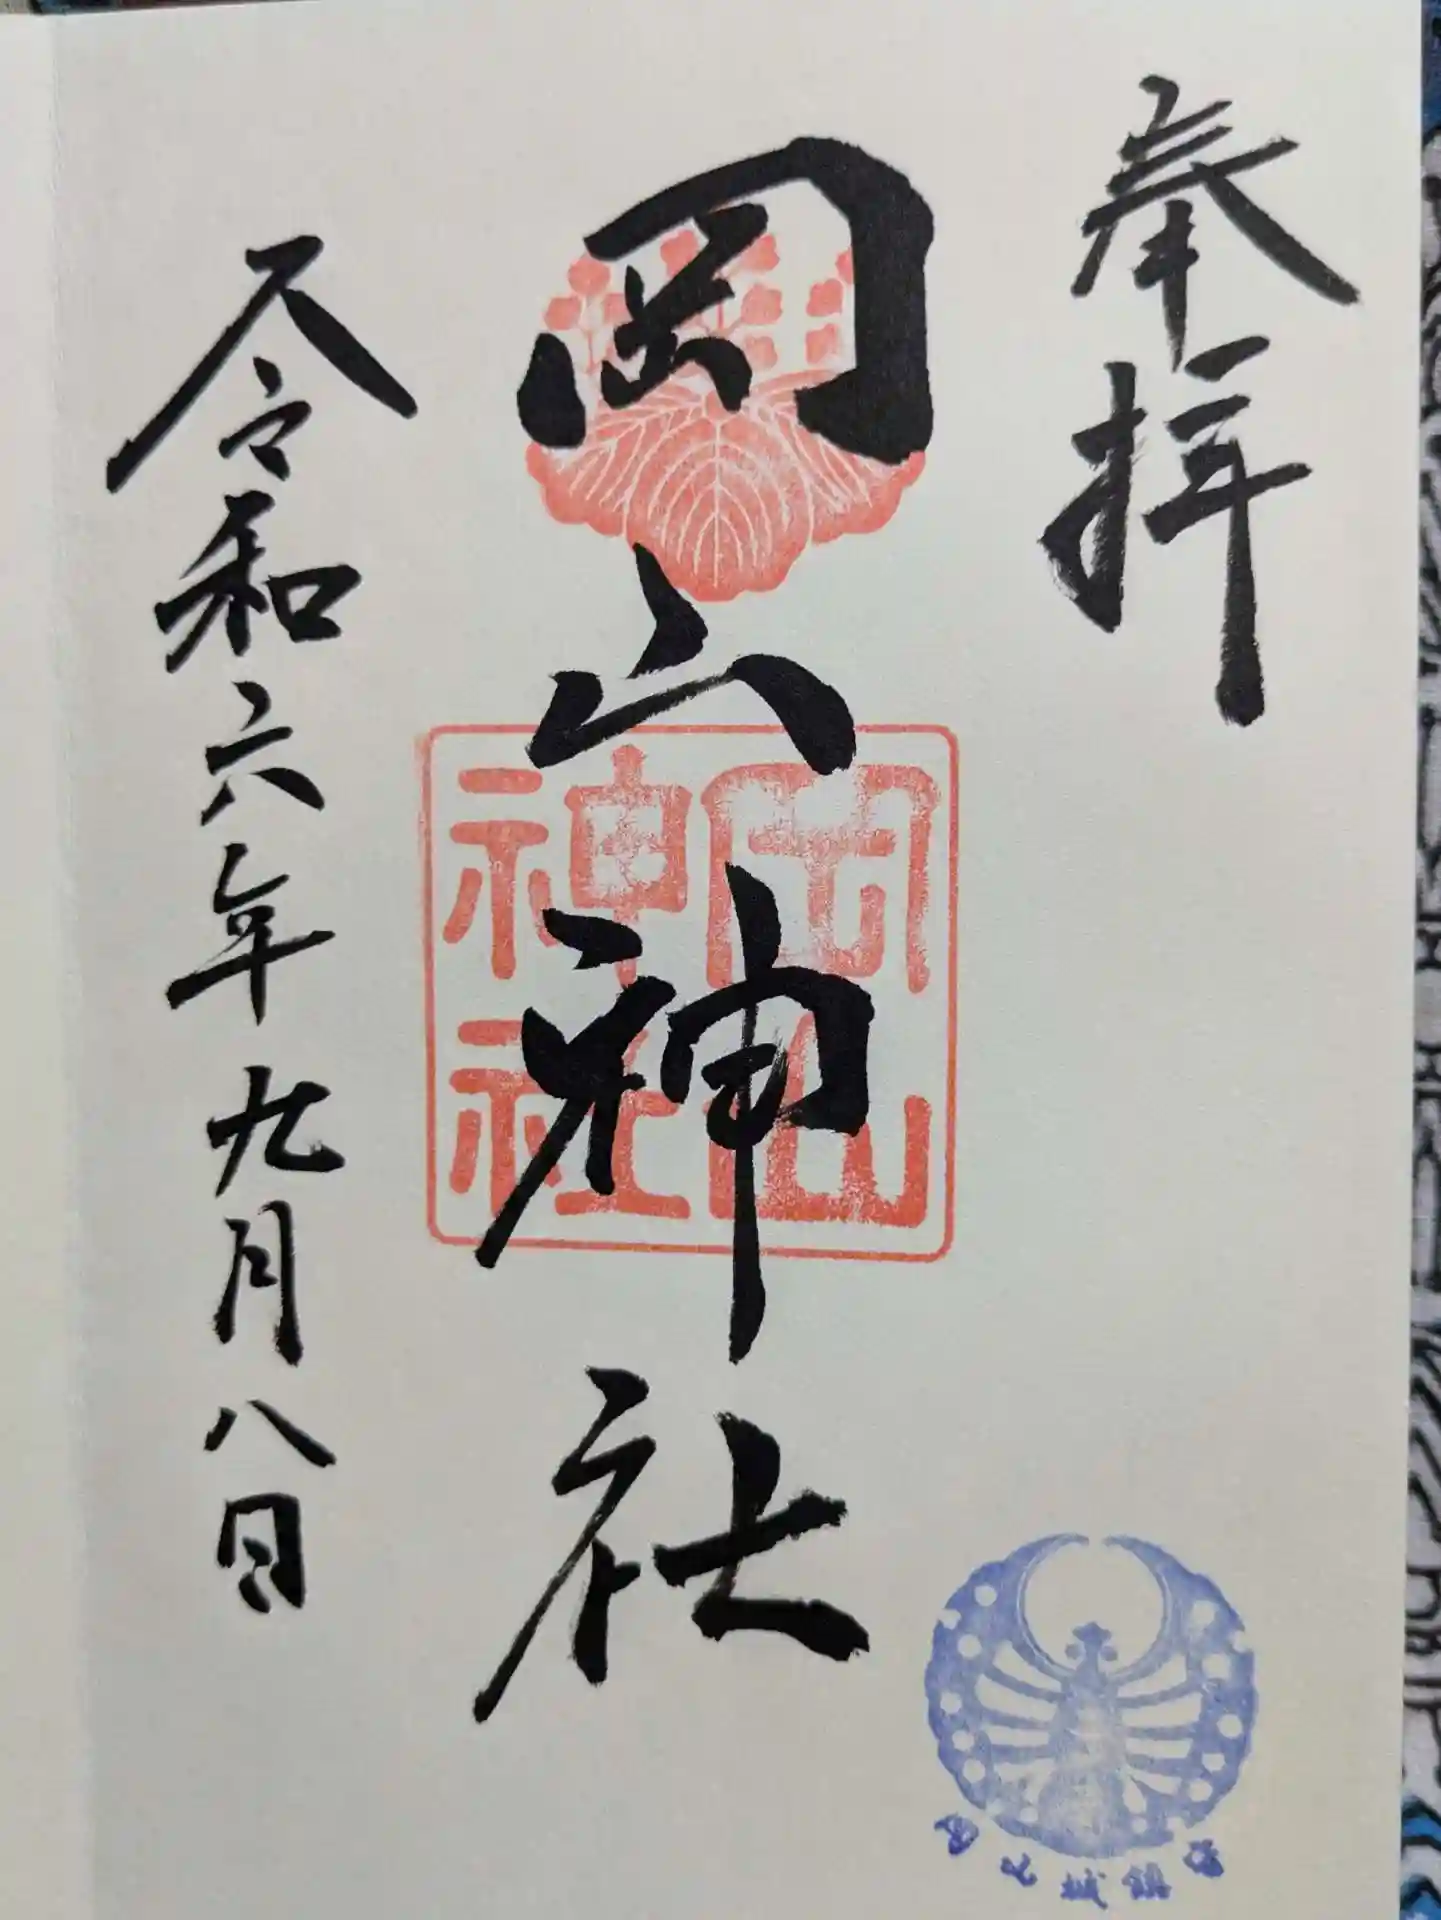 奉拝
岡山神社
岡山
神社
令和六年九月八日
岡山城鎮守